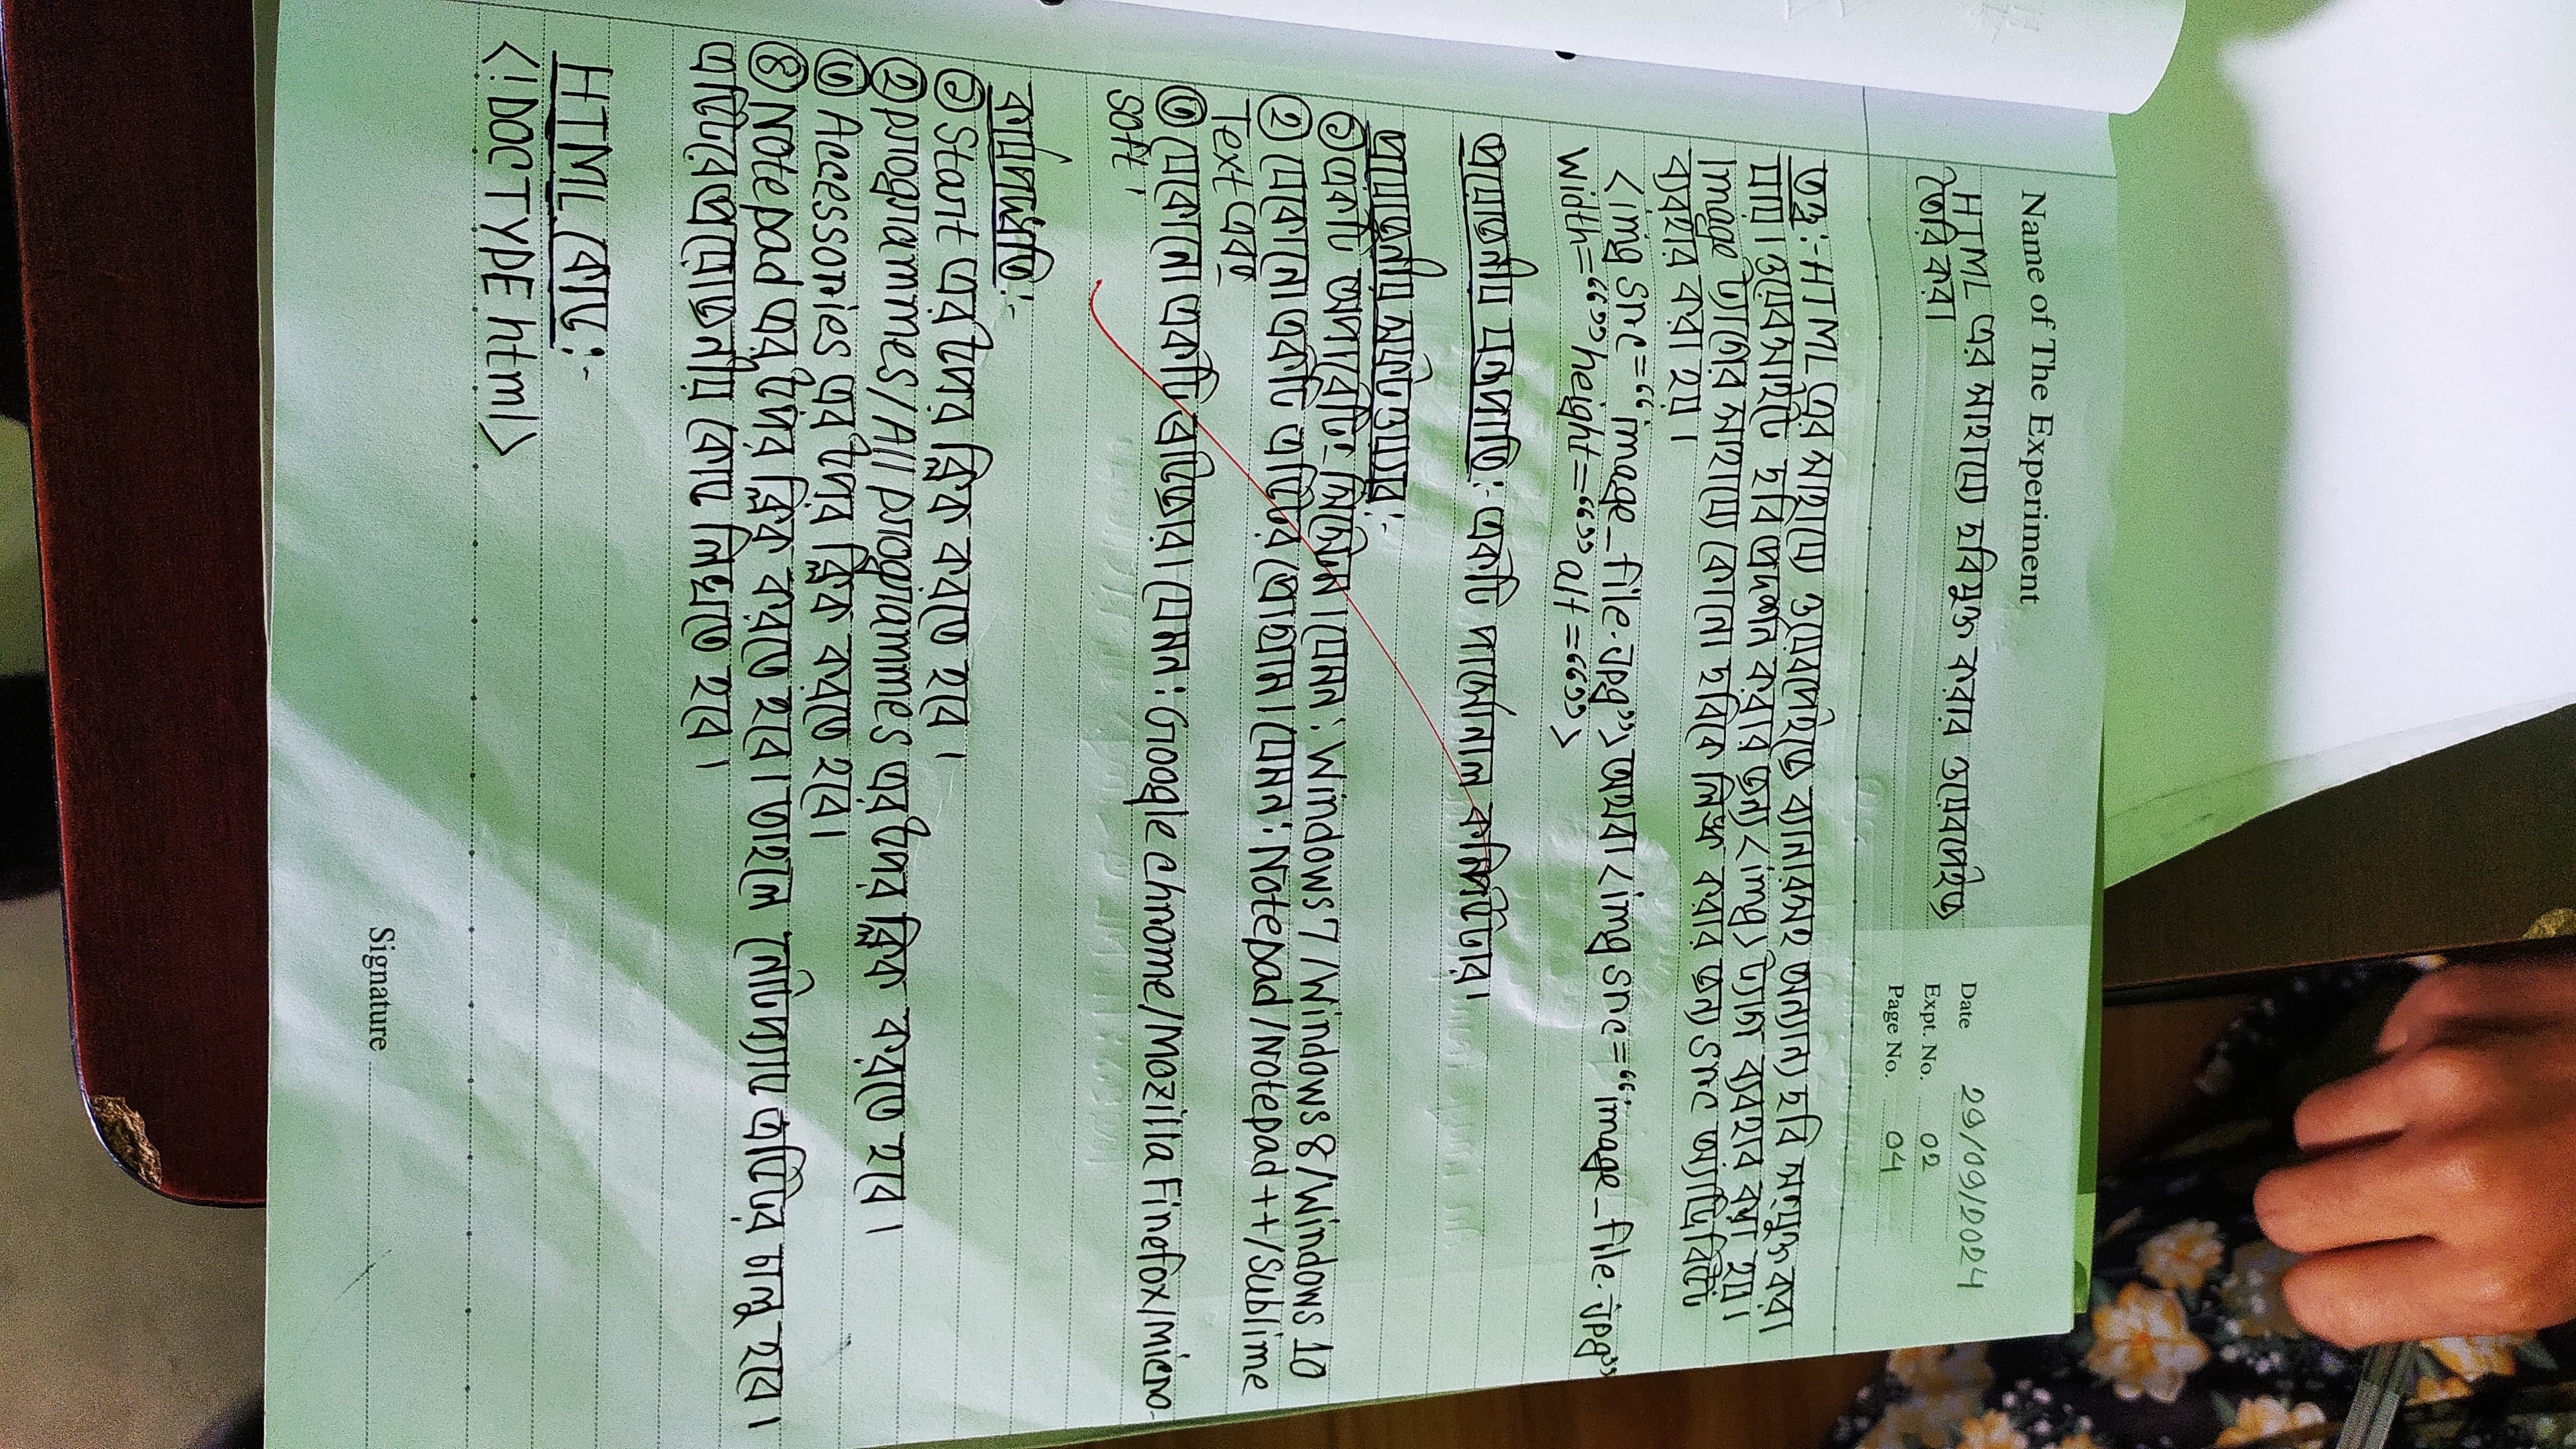 Name of The Experiment
HTML এর সাহায্যে ছবিযুক্ত করার ওয়েবপেইজ
তৈরি করা
Date 29/09/2024
Expt. No. 02
Page No. 04
তত্ত্ব :- HTML এর সাহায্যে ওয়েবপেইজে ব্যানারসহ অন্যান্য ছবি সংযুক্ত করা
যায়। ওয়েবসাইটে ছবি প্রদর্শন করার জন্য <img> ট্যাগ ব্যবহার করা হয়।
Image ট্যাগের সাহায্যে কোনো ছবিকে লিঙ্ক করার জন্য src অ্যাট্রিবিউট
ব্যবহার করা হয়।
<img src=“image_file.jpg”> অথবা <img src=“image_file.jpg”
width=“” height=“” alt=“”>
প্রয়োজনীয় যন্ত্রপাতি :- একটি পার্সোনাল কম্পিউটার।
প্রয়োজনীয় সফটওয়্যার :-
① একটি অপারেটিং সিস্টেম। যেমন : Windows 7 / Windows 8 / Windows 10
② যেকোনো একটি এডিটর প্রোগ্রাম। যেমন : Notepad / Notepad ++ / Sublime
Text এবং
③ যেকোনো একটি ব্রাউজার। যেমন : Google chrome / Mozilla Firefox / Micro-
soft ।
কার্যপদ্ধতি :-
① Start এর উপর ক্লিক করতে হবে ।
② programmes / All programmes এর উপর ক্লিক করতে হবে ।
③ Accessories এর উপর ক্লিক করতে হবে।
④ Notepad এর উপর ক্লিক করতে হবে। তাহলে নোটপ্যাড এডিটর চালু হবে ।
এডিটরে প্রয়োজনীয় কোড লিখতে হবে ।
HTML কোড :-
<!DOCTYPE html>
Signature